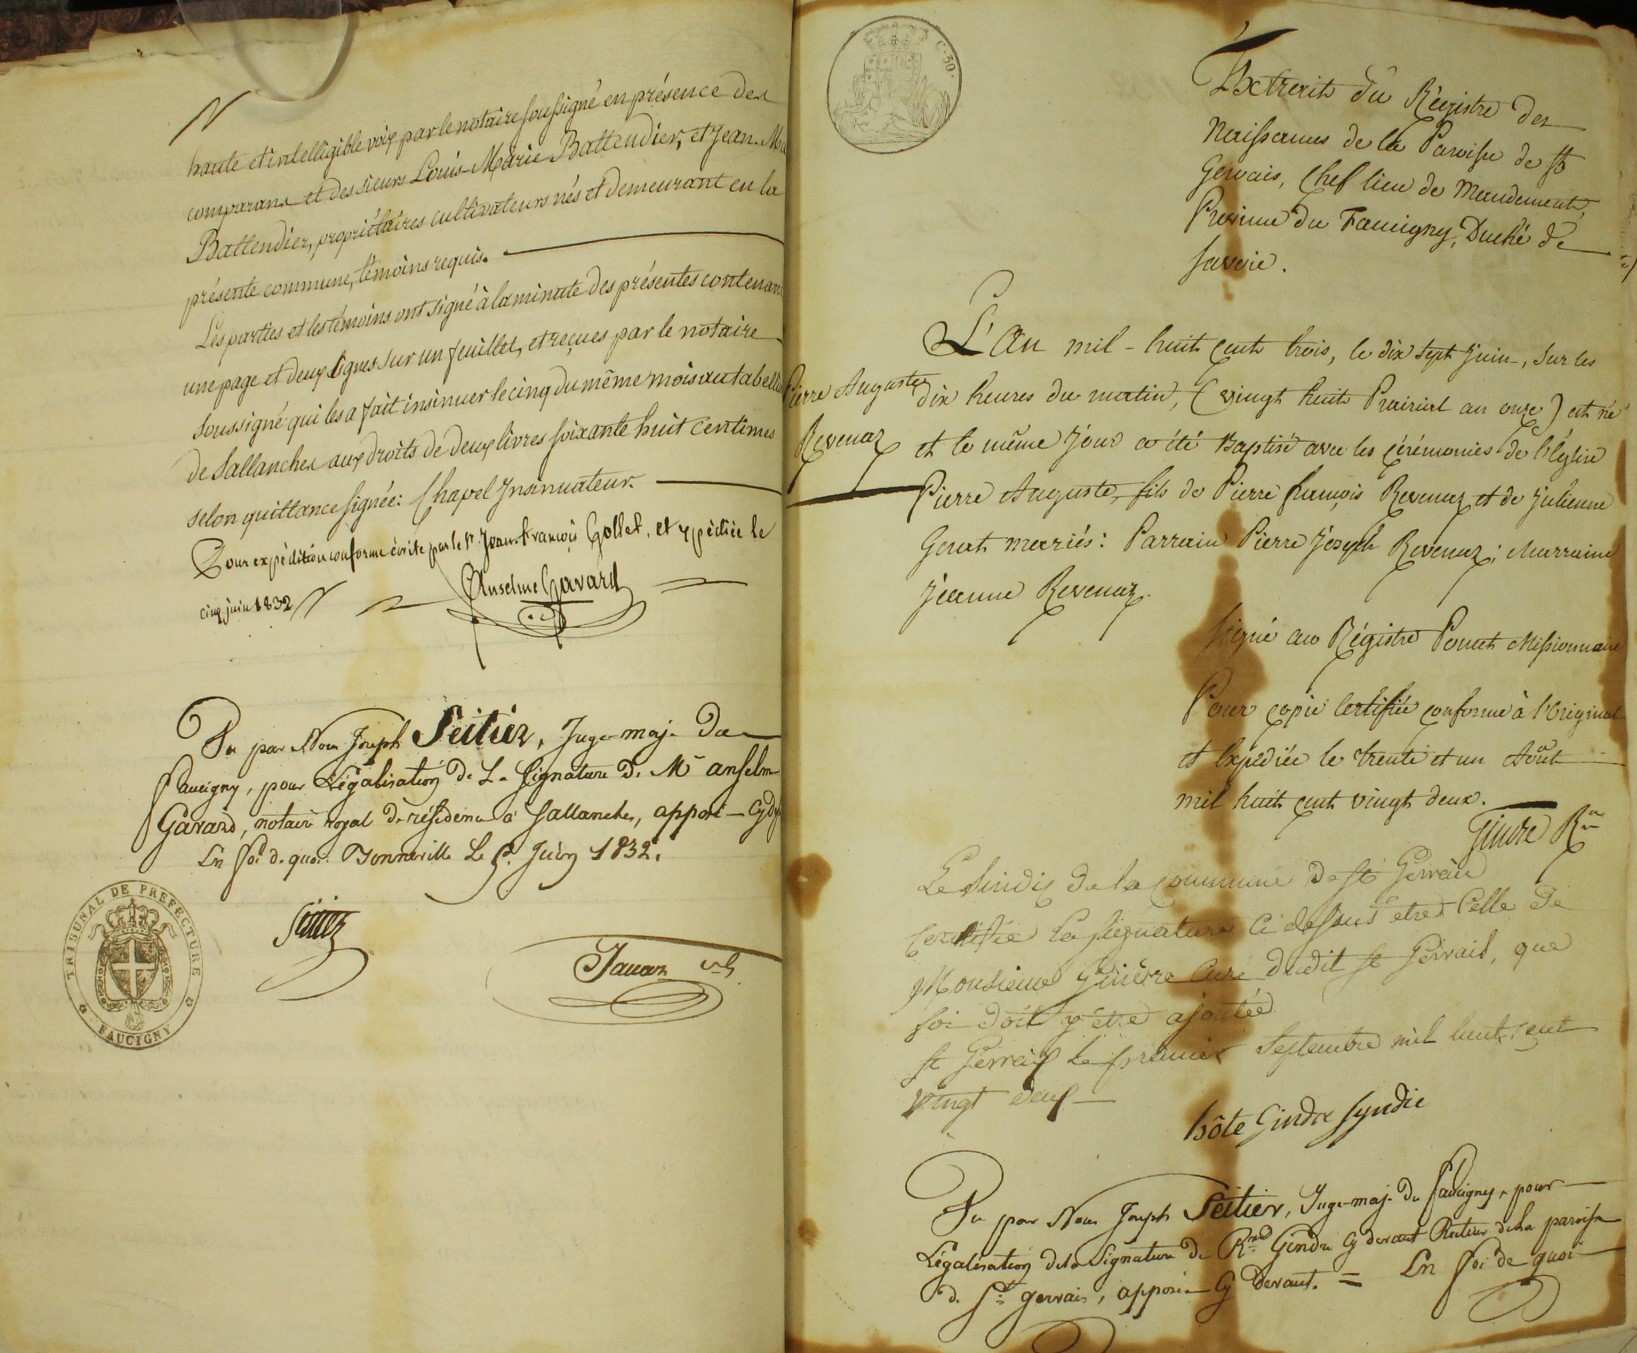 haute et intelligible voix par le notaire soussigné en présence des
comparans et des sieurs Louis-Marie Battendier, et Jean-M
Battendier, propriétaires cultivateurs nés et demeurant en la
présente commune, témoins requis.
Les parties et les témoins ont signé à la minute des présentes contenant
une page et deux lignes sur un feuillet, et reçues par le notaire
soussigné qui les a fait insinuer le cinq du même mois au tabelli
de Sallanches aux droits de deux livres soixante huit centimes
selon quittance signée: Chapel Insinuateur.
Pour expédition conforme écrite par le Sr. Jean-François Gollet, et expédiée le
cinq juin 1832
Anselme Gavard
Vu par Nous Joseph Seitier, Juge-maje du
Faucigny, pour Légalisation de La Signature de Me anselme
Gavard, notaire royal de résidence à Sallanches, apposée Cy d
En foi de quoi. Bonneville Le 5. Juin 1832.
TRIBUNAL DE PREFECTURE
FAUCIGNY
Seitier
C. 50.
Extrait du Régistre des
Naissances de la Paroisse de St
Gervais, Chef lieu de Mandement,
Province du Faucigny, Duché de
Savoie.
L'An mil-huit cent trois, le dix sept juin, sur les
Pierre Auguste
dix heures du matin, (vingt huit Prairial an onze) est né
Revenaz
et le même jour a été Baptisé avec les cérémonies de l'Eglise
Pierre Auguste, fils de Pierre françois Revenaz et de julienne
mariés: Parrain Pierre Joseph Revenaz; Marraine
jeanne Revenaz.
Signé au Régistre Missionnaire
Pour copie certifiée conforme à l'Original
et Expédiée le trente et un Août
mil huit cent vingt deux.
Gindre Rr
Le Sindic de la Commune de St Gervais
Certifie la signature Ci dessus etre Celle de
Monsieur Curé dudit St Gervais, que
foi doit y être ajoutée
St Gervais le premier Septembre mil huit cent
vingt deux
hôte Gindre syndic
Vu par Nous Joseph Seitier, Juge-maje du Faucigny, pour
Légalisation de la Signature de Rnd Gindre Cy devant Recteur de la paroisse
de St gervais, apposée Cy devant. = En foi de quoi